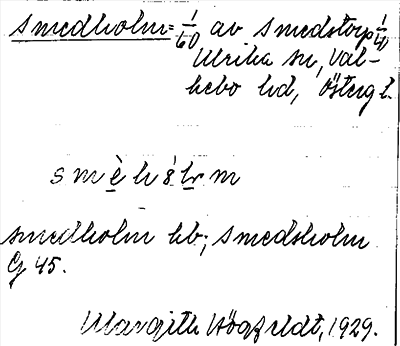 Smedholm = 1/60 av Smedstorp 1/40
Ulrika sn, Val-
kebo hd, Östergl.
smèhólm
Smedholm hb; Smedsholm
GJ 45.
Margith Högfeldt, 1929.